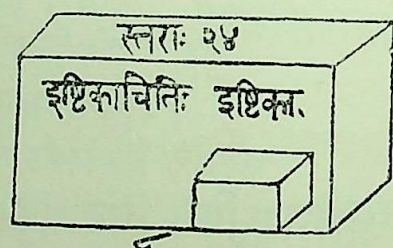 स्तराः २४
इष्टिकाचितिः इष्टिका.